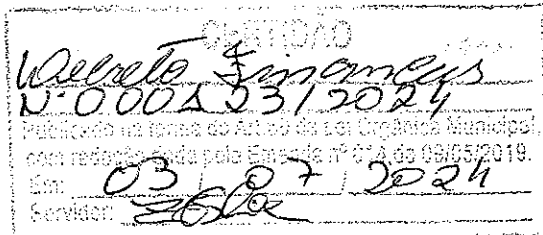 CERTIDÃO
Decreto Financeiro
Nº 0001 23/2024
Publicado na forma do Art. 90 da Lei Orgânica Municipal,
com redação dada pela Emenda nº 014, de 09/05/2019.
Em: 03 / 07 / 2024
Servidor: